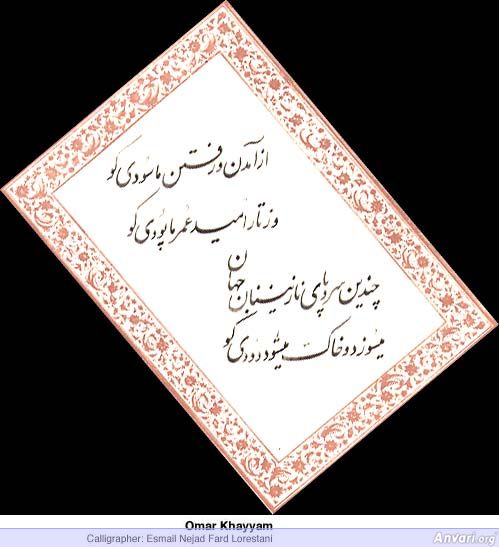 از آمدن و رفتن ما سودی کو
وز تار امید عمر ما پودی کو
چندین سر و پای نازنینان جهان
میسوزد و خاک میشود دودی کو
Omar Khayyam
Calligrapher: Esmail Nejad Fard Lorestani
Anvari.org